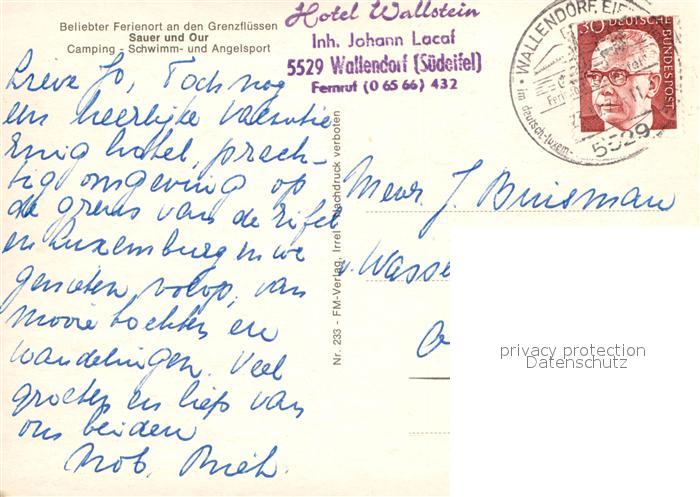 Beliebter Ferienort an den Grenzflüssen
Sauer und Our
Camping - Schwimm- und Angelsport
Hotel Wallstein
Inh. Johann Lacaf
5529 Wallendorf (Südeifel)
Fernruf (0 65 66) 432
WALLENDORF, EIFEL
im deutsch-luxem-
5529
30 DEUTSCHE BUNDESPOST
Lieve Jo, Toch nog
een heerlijke vacantie
Enig hotel, prach-
tig omgeving op
de grens van de Eifel
en Luxemburg en we
genieten volop, van
mooie tochten en
wandelingen. Veel
groeten en liefs van
ons beiden
Nr. 233 - FM-Verlag, Irrel - Nachdruck verboten
Mevr. J. Buisman
v. Wasse
privacy protection
Datenschutz